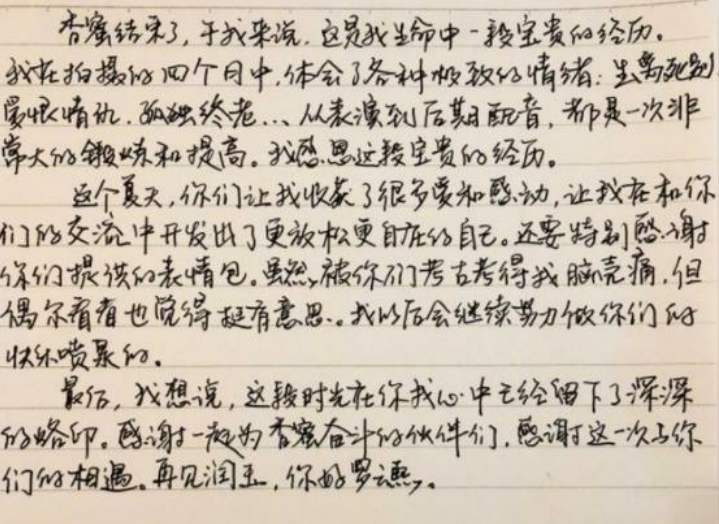 香蜜结束了,于我来说,这是我生命中一段宝贵的经历。
我在拍摄的四个月中,体会了各种极致的情绪:生离死别
爱恨情仇,孤独终老...从表演到后期配音,都是一次非
常大的锻炼和提高。我感恩这段宝贵的经历。
这个夏天,你们让我收获了很多爱和感动,让我在和你
们的交流中开发出了更放松更自在的自己。还要特别感谢
你们提供的表情包。虽然被你们考古考得我脑壳痛,但
偶尔看看也觉得挺有意思。我以后会继续努力做你们的
快乐喷泉的。
最后,我想说,这段时光在你我心中已经留下了深深
的烙印。感谢一起为香蜜奋斗的伙伴们,感谢这一次与你
们的相遇。再见润玉,你好罗云熙。